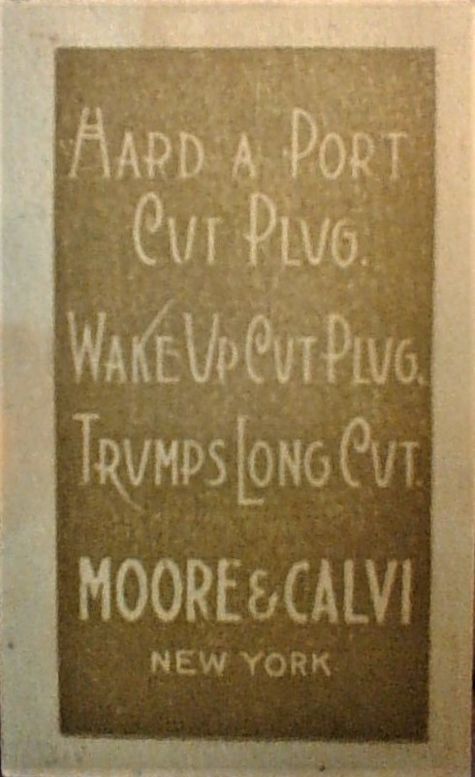 HARD A PORT
CUT PLUG.
WAKE UP CUT PLUG.
TRUMPS LONG CUT.
MOORE & CALVI
NEW YORK